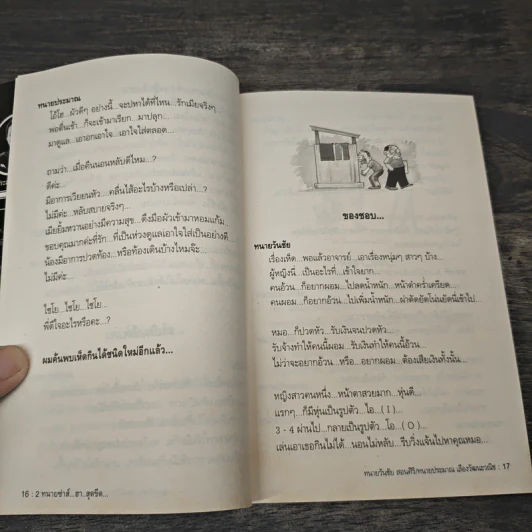 ทนายประมาณ
โอ้โฮ...ผัวดีๆ อย่างนี้...จะปหาได้ที่ไหน...รักเมียจริงๆ
พอตื่นเช้า...ก็จะเข้ามาเรียก...มาปลุก...
มาดูแล...เอาอกเอาใจ...เอาใจใส่ตลอด...
ถามว่า...เมื่อคืนนอนหลับดีไหม...?
ดีค่ะ...
มีอาการเวียนหัว...คลื่นไส้อะไรบ้างหรือเปล่า...?
ไม่มีค่ะ...หลับสบายจริงๆ...
เมียยิ้มหวานอย่างมีความสุข...ดึงมือผัวเข้ามาหอมแก้ม...
ขอบคุณมากค่ะที่รัก...ที่เป็นห่วงดูแลเอาใจใส่เป็นอย่างดี
น้องมีอาการปวดท้อง...หรือท้องเดินบ้างไหมจ๊ะ...
ไม่มีค่ะ...
ไชโย...ไชโย...ไชโย...
พี่ดีใจอะไรหรือคะ...?
ผมค้นพบเห็ดกินได้ชนิดใหม่อีกแล้ว...
16 : 2 ทนายซ่าส์...ฮา...สุดขีด...
ของชอบ...
ทนายวันชัย
เรื่องเห็ด...พอแล้วอาจารย์...เอาเรื่องหนุ่มๆ สาวๆ บ้าง...
ผู้หญิงนี่...เป็นอะไรที่...เข้าใจยาก...
คนอ้วน...ก็อยากผอม...ไปลดน้ำหนัก...หน้าดำคร่ำเครียด...
คนผอม...ก็อยากอ้วน...ไปเพิ่มน้ำหนัก...ผ่าตัดยัดโน่นยัดนี่เข้าไป...
หมอ...ก็ปวดหัว...รับเงินจนปวดหัว...
รับจ้างทำให้คนนี้ผอม...รับเงินทำให้คนนี้อ้วน...
ไม่ว่าจะอยากอ้วน...หรือ...อยากผอม...ต้องเสียเงินทั้งนั้น...
หญิงสาวคนหนึ่ง...หน้าตาสวยมาก...หุ่นดี...
แรกๆ...ก็มีหุ่นเป็นรูปตัว...ไอ...( I )...
3 - 4 ผ่านไป...กลายเป็นรูปตัว...โอ...( O )...
เล่นเอาเธอกินไม่ได้...นอนไม่หลับ...รีบวิ่งแจ้นไปหาคุณหมอ...
ทนายวันชัย สอนศิริ/ทนายประมาณ เลืองวัฒนะวณิช : 17